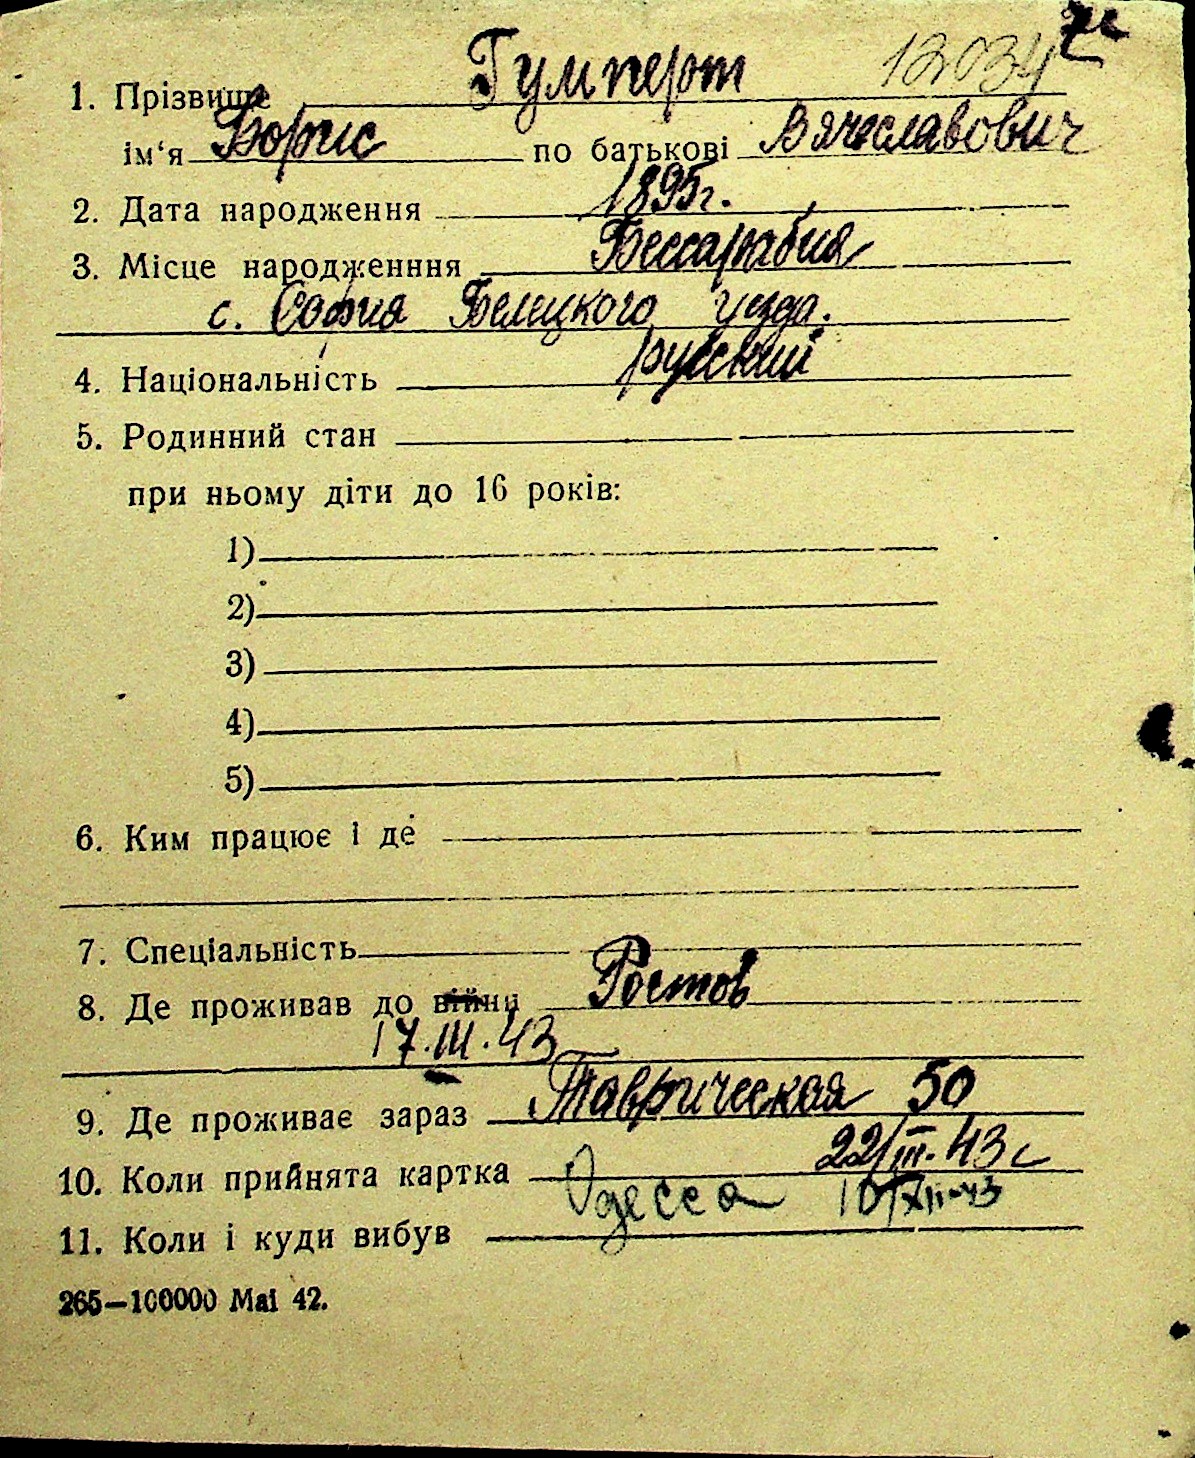 12034
1. Прізвище Гумперт
ім'я Борис по батькові Вячеславович
2. Дата народження 1895г.
3. Місце народженння Бессарабия
с. София Белецкого уезда.
4. Національність русский
5. Родинний стан
при ньому діти до 16 років:
1)
2)
3)
4)
5)
6. Ким працює і де
7. Спеціальність
8. Де проживав до війни Ростов
17.III.43
9. Де проживає зараз Таврическая 50
10. Коли прийнята картка 22/III-43 г
Одесса 10/XII-43
11. Коли і куди вибув
265—100000 Mai 42.